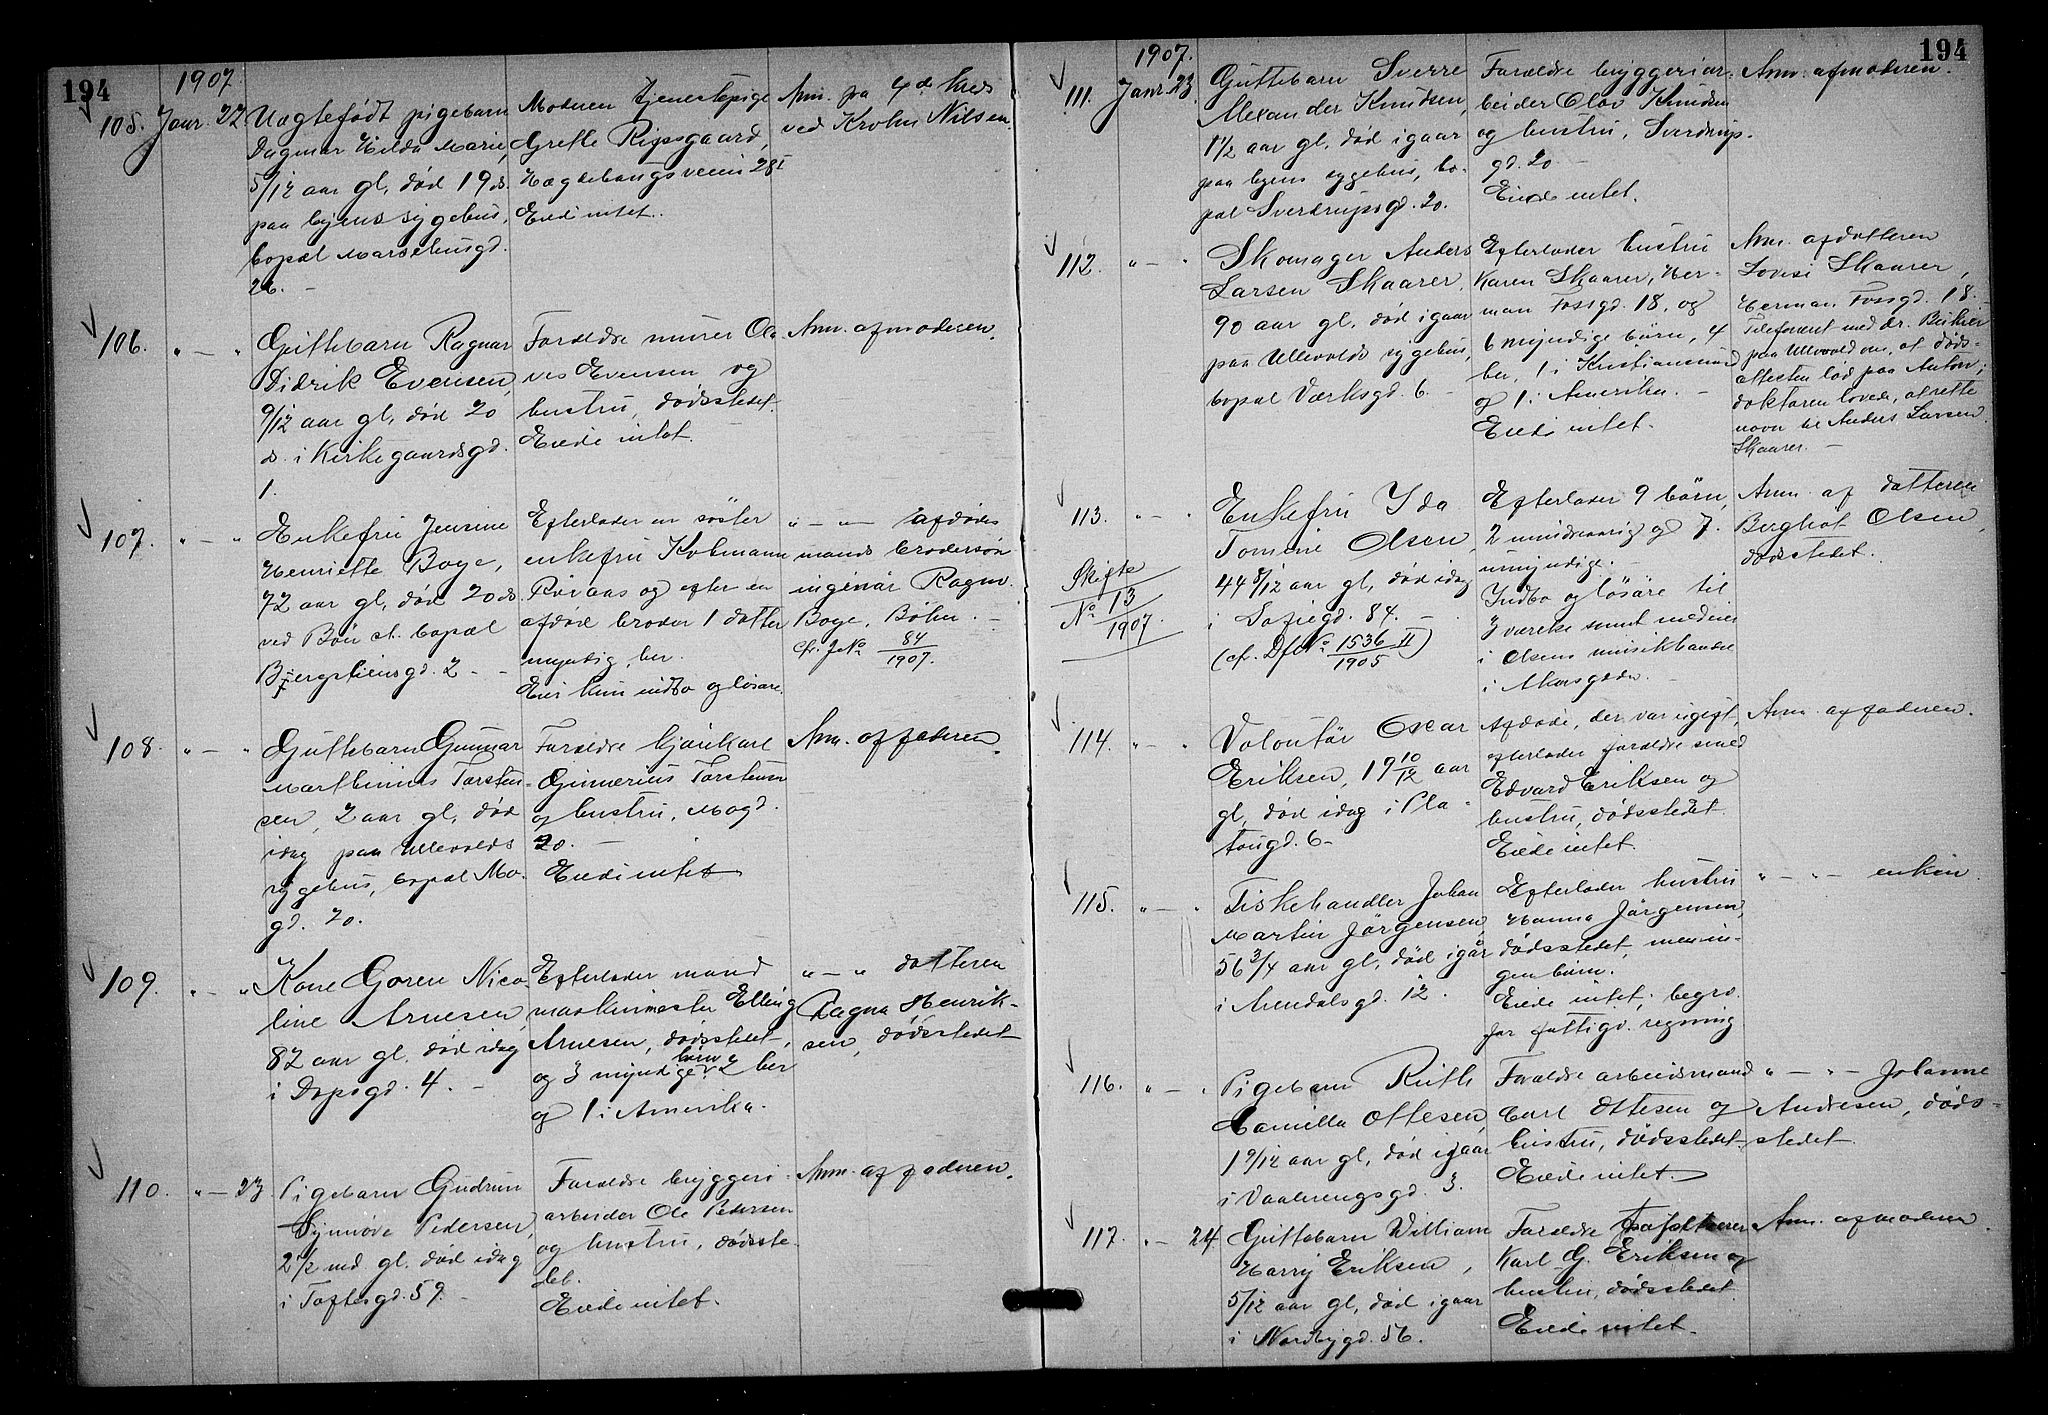 194
1907
105. Janr. 22.
Uægtefødt pigebarn
Dagmar Hilda Marie,
5/12 aar gl, død 19 ds.
paa byens sygehus,
bopæl Marseliusgd.
26. –
Moderen tjenestepige
Grethe Ripsgaard,
Hægdehaugsveien 28 I
Eiede intet.
Anm. pa 4de kreds
ved Krohn Nilsen.
106. " — "
Guttebarn Ragnar
Didrik Evensen,
9/12 aar gl, død 20
ds. i Kirkegaardsgd.
1.
Forældre murer Ola
ves Evensen og
hustru, dødsstedet.
Eiede intet.
Anm. af moderen.
107. " — "
Enkefru Jensine
Henriette Boye,
72 aar gl, død 20 ds.
ved Bøn st. bopæl
Bjergstiensgd. 2 –
Efterlader en søster
enkefru
Røraas og efter en
afdød broder 1 datter
myndig, her.
Eier kun indbo og løsøre.
" — " — afdødes
mands brodersøn
ingeniør Ragnv.
Boye, Bøhn. –
cfr. J No 84/1907.
108. " — "
Guttebarn Gunnar
Marthinius Torsten-
sen, 2 aar gl, død
idag paa Ullevolds
sygehus, bopæl Mo-
gd. 20.
Forældre kjørekarl
Gunnerius Torstensen
og hustru, Mogd.
20. –
Eiede intet
Anm. af faderen.
109. " — "
Kone Goren Nico-
line Arnesen,
82 aar gl. død idag
i Dopsgd. 4. –
Efterlader mand
maskinmester Elling
Arnesen, dødsstedet,
og 3 myndige børn, 2 her
og 1 i Amerika.
" — " datteren
Ragna Henrik-
sen, dødsstedet
110. " — 23
Pigebarn Gudrun
Synnøve Pedersen,
2 1/2 md. gl. død idag
i Toftesgd. 59. –
Forældre bryggeri-
arbeider Ole Pedersen
og hustru, dødsste-
det.
Eiede intet.
Anm. af faderen.
194
1907.
111. Janr. 23.
Guttebarn Sverre
Alexander Knudsen,
1 1/2 aar gl, død igaar
paa byens sygehus, bo-
pæl Sverdrupsgd. 20.
Forældre bryggeriar-
beider Olav Knudsen
og hustru, Sverdrups-
gd. 20 –
Eiede intet.
Anm. af moderen.
112. " — "
Skomager Anders
Larsen Skaarer,
90 aar gl, død igaar
paa Ullevolds sygehus,
bopæl Værksgd. 6. –
Efterlader hustru
Karen Skaarer, Her-
man Fossgd. 18, og
6 myndige børn, 4
her, 1 i Kristianssund
og 1 i Amerika. –
Eiede intet.
Anm. af datteren
Lovise Skaarer,
Herman Fossgd. 18.
Telefonert med dr.
paa Ullevold om, at døds-
attesten lød paa Anton;
doktoren lovede, at rette
navn til Anders Larsen
Skaarer. –
113. " — "
Skifte
No 13
1907.
Enkefru Ida
Tomine Olsen,
44 8/12 aar gl, død idag
i Sofiegd. 84. –
(cfr. Dfl No 1536 II/1905)
Efterlader 9 børn,
2 mindreaarig og 7
umyndige. –
Indbo og løsøre til
3 værelse samt
i Olsens musikhandel
i Akersgaden. –
Anm. af datteren
Borghot Olsen,
dødsstedet.
114. " — "
Volontør Oscar
Eriksen, 19 10/12 aar
gl, død idag i Pla-
tougd. 6 –
Afdøde, der var ugift,
efterlader forældre smed
Edvard Eriksen og
hustru, dødsstedet.
Eiede intet.
Anm. af faderen.
115. " — "
Fiskehandler Johan
Martin Jørgensen,
56 3/4 aar gl, død igår
i Arendalsgd. 12.
Efterlader hustru
Hanna Jørgensen,
dødsstedet, men in-
gen børn.
Eiede intet; begrv.
for fattigv. regning
" — " — enken.
116. " — "
Pigebarn Ruth
Camilla Ottesen,
1 9/12 aar gl, død igaar
i Vaalerengsgd. 3.
Forældre arbeidsmand
Carl Ottesen og
hustru, dødsstedet.
Eiede intet.
" — " — Johanne
Andresen, døds-
stedet.
117. " — 24
Guttebarn William
Harry Eriksen,
5/12 aar gl, død igaar
i Nordbygd. 56.
Forældre
Karl G. Eriksen og
hustru, dødsstedet.
Eiede intet.
Anm. af moderen.